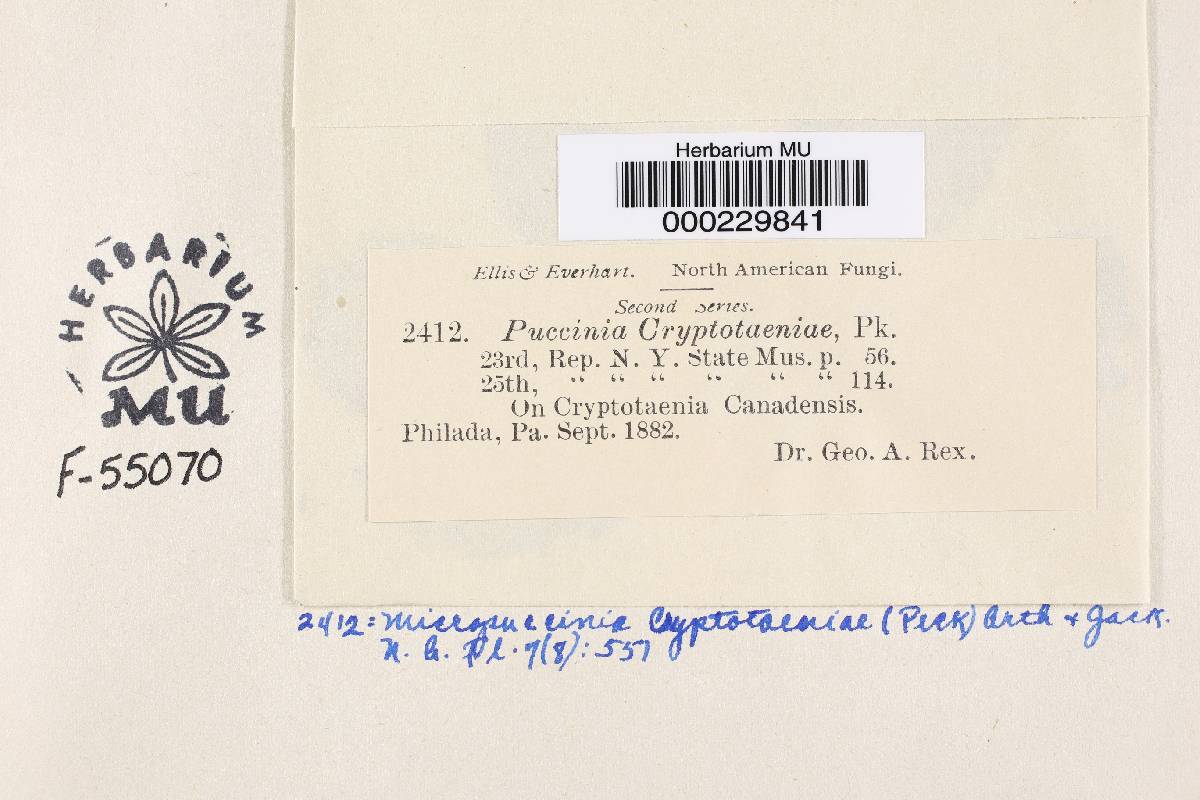 Herbarium MU
000229841
HERBARIUM
MU
F-55070
Ellis & Everhart. North American Fungi.
Second Series.
2412. Puccinia Cryptotaeniae, Pk.
23rd, Rep. N. Y. State Mus. p. 56.
25th, “ “ “ “ “ “ 114.
On Cryptotaenia Canadensis.
Philada, Pa. Sept. 1882.
Dr. Geo. A. Rex.
2412 = Micropuccinia Cryptotaeniae (Peck) Arth & Jack.
N. A. Fl. 7(8): 557